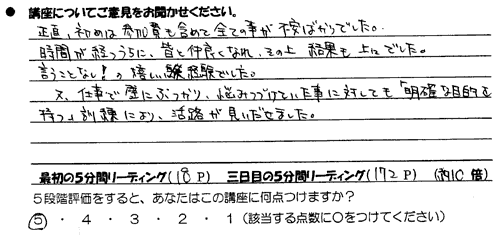 ● 講座についてご意見をお聞かせください。
正直、初めは参加費も含めて全ての事が不安ばかりでした。
時間が経つうちに、皆と仲良くなれ、その上 結果も上々でした。
言うことなし!の嬉しい経験でした。
又、仕事で壁にぶつかり、悩みつづけていた事に対しても「明確な目的を
持つ」訓練により、活路が見いだせました。
最初の5分間リーディング(18 P) 三日目の5分間リーディング(172 P) (約10 倍)
5段階評価をすると、あなたはこの講座に何点つけますか?
5 ・ 4 ・ 3 ・ 2 ・ 1 (該当する点数に○をつけてください)